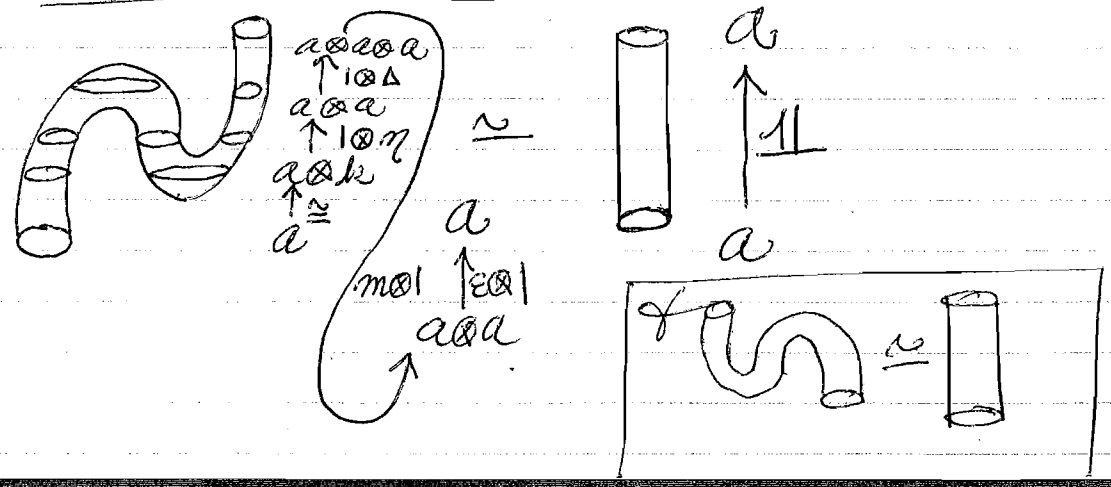 a⊗a⊗a
↑ 1⊗Δ
a⊗a
↑ 1⊗η
a⊗k
↑ ≅
a
m⊗1
a
↑ ε⊗1
a⊗a
≃
a
↑ 1
a
≃